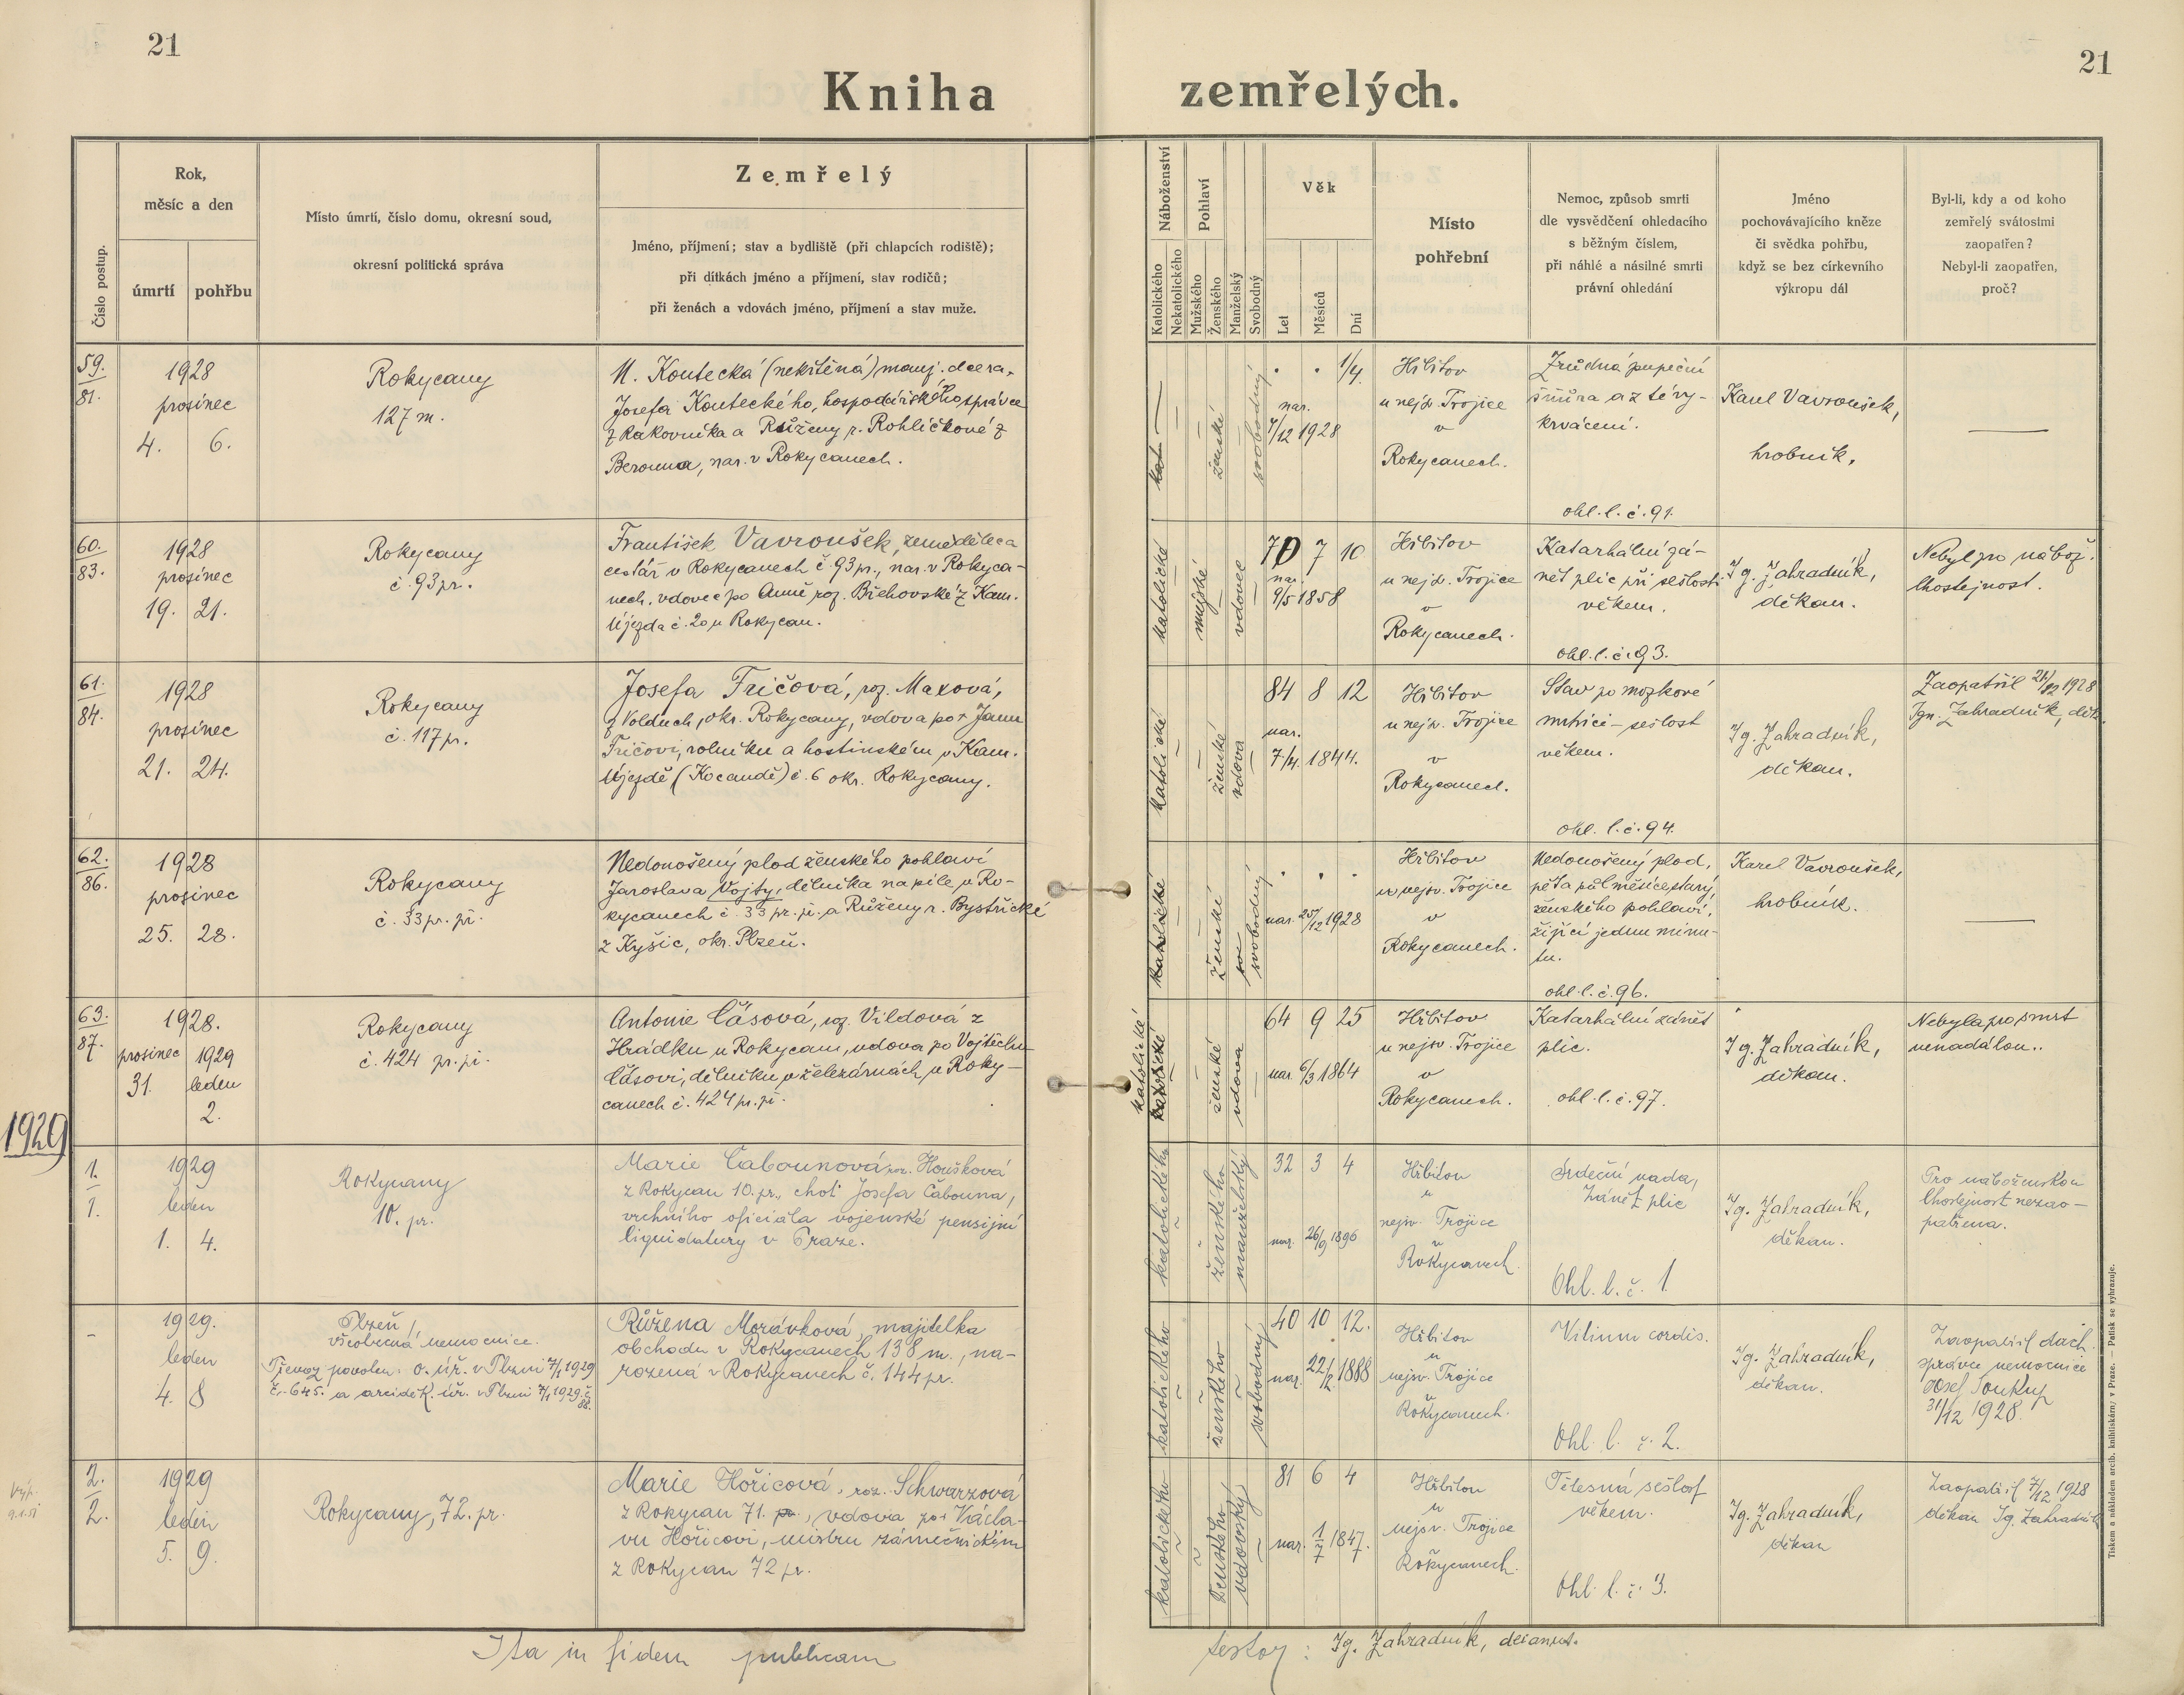 21
21
Kniha zemřelých.
Číslo postup.
Rok,
měsíc a den
úmrtí
pohřbu
Místo úmrtí, číslo domu, okresní soud,
okresní politická správa
Zemřelý
Jméno, příjmení; stav a bydliště (při chlapcích rodiště);
při dítkách jméno a příjmení, stav rodičů;
při ženách a vdovách jméno, příjmení a stav muže.
Náboženství
Katolického
Nekatolického
Pohlaví
Mužského
Ženského
Manželský
Svobodný
Věk
Let
Měsíců
Dní
Místo
pohřební
Nemoc, způsob smrti
dle vysvědčení ohledacího
s běžným číslem,
při náhlé a násilné smrti
právní ohledání
Jméno
pochovávajícího kněze
či svědka pohřbu,
když se bez církevního
výkropu dál
Byl-li, kdy a od koho
zemřelý svátostmi
zaopatřen?
Nebyl-li zaopatřen,
proč?
59.
81.
1928
prosinec
4. 6.
Rokycany
127 m.
N. Koutecká (nekřtěná) manž. dcera
Josefa Kouteckého, hospodářského správce
z Rakovníka a Růženy r. Rohlíčkové z
Berouna, nar. v Rokycanech.
kat
ženské
svobodný
1/4.
nar.
4/12 1928
Hřbitov
u nejsv. Trojice
v
Rokycanech.
Zrůdná pupeční
šňůra a z té vy-
krvácení.
ohl. l. č. 91.
Karel Vavroušek,
hrobník.
60.
83.
1928
prosinec
19. 21.
Rokycany
č. 93 pr.
František Vavroušek, zemědělec a
cestář v Rokycanech č. 93 pr., nar. v Rokyca-
nech, vdovec po Anně roz. Břehovské z Kam.
Újezda č. 20 u Rokycan.
katolické
mužské
vdovec
70 7 10
nar.
9/5 1858
Hřbitov
u nejsv. Trojice
v
Rokycanech.
Katarhální zá-
nět plic při sešlosti
věkem.
ohl. l. č. 93.
Ig. Zahradník,
děkan.
Nebyl pro nábož.
lhostejnost.
61.
84.
1928
prosinec
21. 24.
Rokycany
č. 117 pr.
Josefa Fričová, roz. Maxová,
z Volduch, okr. Rokycany, vdova po † Janu
Fričovi, rolníku a hostinském v Kam.
Újezdě (Kocandě) č. 6 okr. Rokycany.
katolické
ženské
vdova
84 8 12
nar.
7/4. 1844.
Hřbitov
u nejsv. Trojice
v
Rokycanech.
Stav po mozkové
mrtvici – sešlost
věkem.
ohl. l. č. 94.
Ig. Zahradník,
děkan.
Zaopatřil 21/12 1928
Ign. Zahradník, děk.
62.
86.
1928
prosinec
25. 28.
Rokycany
č. 33 pr. př.
Nedonošený plod ženského pohlaví
Jaroslava Vojty, dělníka na pile v Ro-
kycanech č. 33 pr. př. a Růženy r. Bystřické
z Kyšic, okr. Plzeň.
katolické
ženské
svobodný
nar. 25/12 1928
Hřbitov
u nejsv. Trojice
v
Rokycanech.
Nedonošený plod,
pět a půl měsíce starý,
ženského pohlaví,
žijící jednu minu-
tu.
ohl. l. č. 96.
Karel Vavroušek,
hrobník.
63.
87.
1928.
prosinec 1929
31. leden
2.
Rokycany
č. 424 pr. př.
Antonie Čásová, roz. Vildová z
Hrádku u Rokycan, vdova po Vojtěchu
Čásovi, dělníku v železárnách v Roky-
canech č. 424 pr. př.
katolické
katolické
ženské
vdova
64 9 25
nar. 6/3 1864
Hřbitov
u nejsv. Trojice
v
Rokycanech.
Katarhální zánět
plic.
ohl. l. č. 97.
Ig. Zahradník,
děkan.
Nebyla pro smrt
nenadálou..
1929
1.
1.
1929
leden
1. 4.
Rokycany
10. pr.
Marie Čabounová roz. Houšková
z Rokycan 10. pr., choť Josefa Čabouna,
vrchního oficiála vojenské pensijní
liquidatury v Praze.
katolického
ženského
manželský
32 3 4
nar. 26/9 1896
Hřbitov
u
nejsv. Trojice
v
Rokycanech.
Srdeční vada,
zánět plic
Ohl. l. č. 1.
Ig. Zahradník,
děkan.
Pro náboženskou
lhostejnost nezao-
patřena.
–
1929.
leden
4. 8
Plzeň,
všeobecná nemocnice.
Převoz povolen: o. úř. v Plzni 7/1 1929
č. 645. a arciděk. úř. v Plzni 7/1 1929. č. 88.
Růžena Morávková, majitelka
obchodu v Rokycanech 138 m., na-
rozená v Rokycanech č. 144 pr.
katolického
ženského
svobodný
40 10 12.
nar. 22/2. 1888
Hřbitov
u
nejsv. Trojice
v
Rokycanech.
Vitium cordis.
Ohl. l. č. 2.
Ig. Zahradník,
děkan.
Zaopatřil duch.
správce nemocnice
Josef Soukup
31/12 1928.
2.
2.
1929
leden
5. 9.
Rokycany, 72. pr.
Marie Hořicová, roz. Schwarzová
z Rokycan 71. pr., vdova po † Václa-
vu Hořicovi, mistru zámečnickém
z Rokycan 72 pr.
katolického
ženského
vdovský
81 6 4
nar. 1/7 1847.
Hřbitov
u
nejsv. Trojice
Rokycanech.
Tělesná sešlost
věkem.
Ohl. l. č. 3.
Ig. Zahradník,
děkan
Zaopatřil 7/12 1928
děkan Ig. Zahradník
Ita in fidem publicam
testor: Ig. Zahradník, decanus.
Tiskem a nákladem arcib. knihtiskárny v Praze. — Patisk se vyhrazuje.